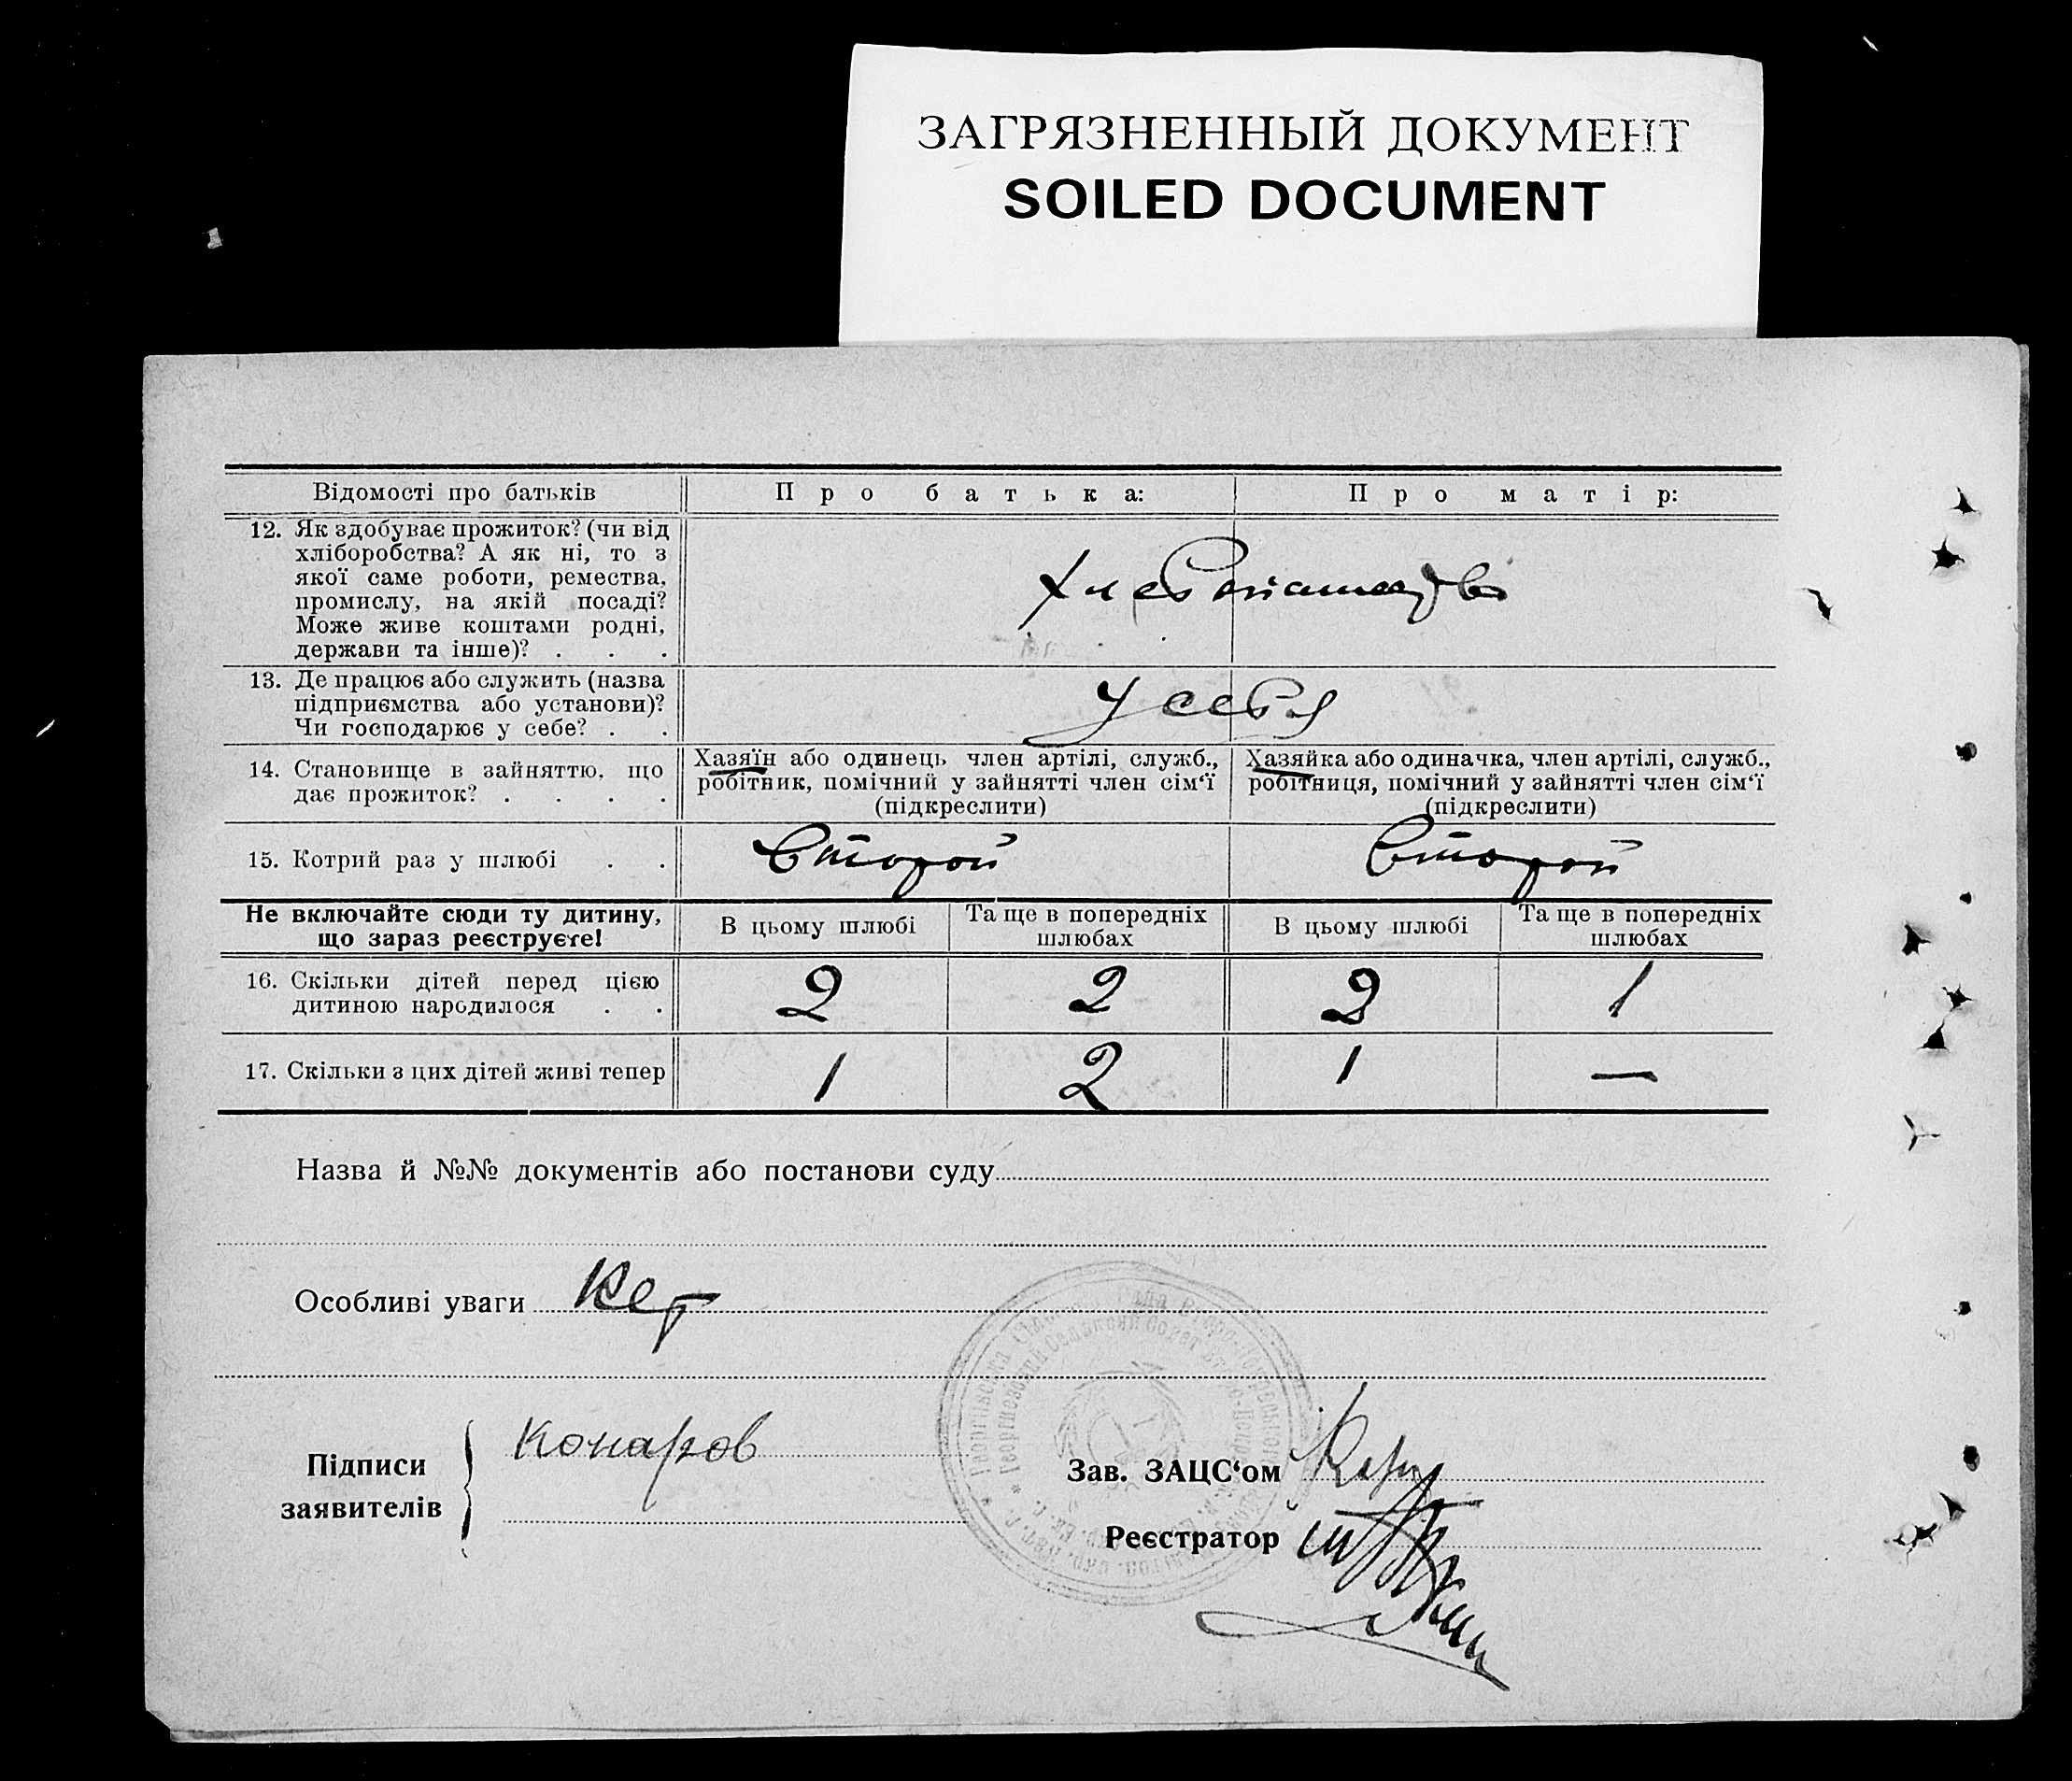 ЗАГРЯЗНЕННЫЙ ДОКУМЕНТ
SOILED DOCUMENT
Відомості про батьків
Про батька:
Про матір:
12. Як здобуває прожиток? (чи від
хліборобства? А як ні, то з
якої саме роботи, ремества,
промислу, на якій посаді?
Може живе коштами родні,
держави та інше)? . . .
13. Де працює або служить (назва
підприємства або установи)?
Чи господарює у себе? . .
У себя
14. Становище в зайняттю, що
дає прожиток? . . . .
Хазяїн або одинець член артілі, служб.,
робітник, помічний у зайнятті член сім‘ї
(підкреслити)
Хазяйка або одиначка, член артілі, служб.,
робітниця, помічний у зайнятті член сім‘ї
(підкреслити)
15. Котрий раз у шлюбі . .
Второй
Второй
Не включайте сюди ту дитину,
що зараз реєструєте!
В цьому шлюбі
Та ще в попередніх
шлюбах
В цьому шлюбі
Та ще в попередніх
шлюбах
16. Скільки дітей перед цією
дитиною народилося . .
2
2
2
1
17. Скільки з цих дітей живі тепер
1
2
1
—
Назва й №№ документів або постанови суду
Особливі уваги
Підписи
заявителів
Конаров
Зав. ЗАЦС‘ом
Реєстратор